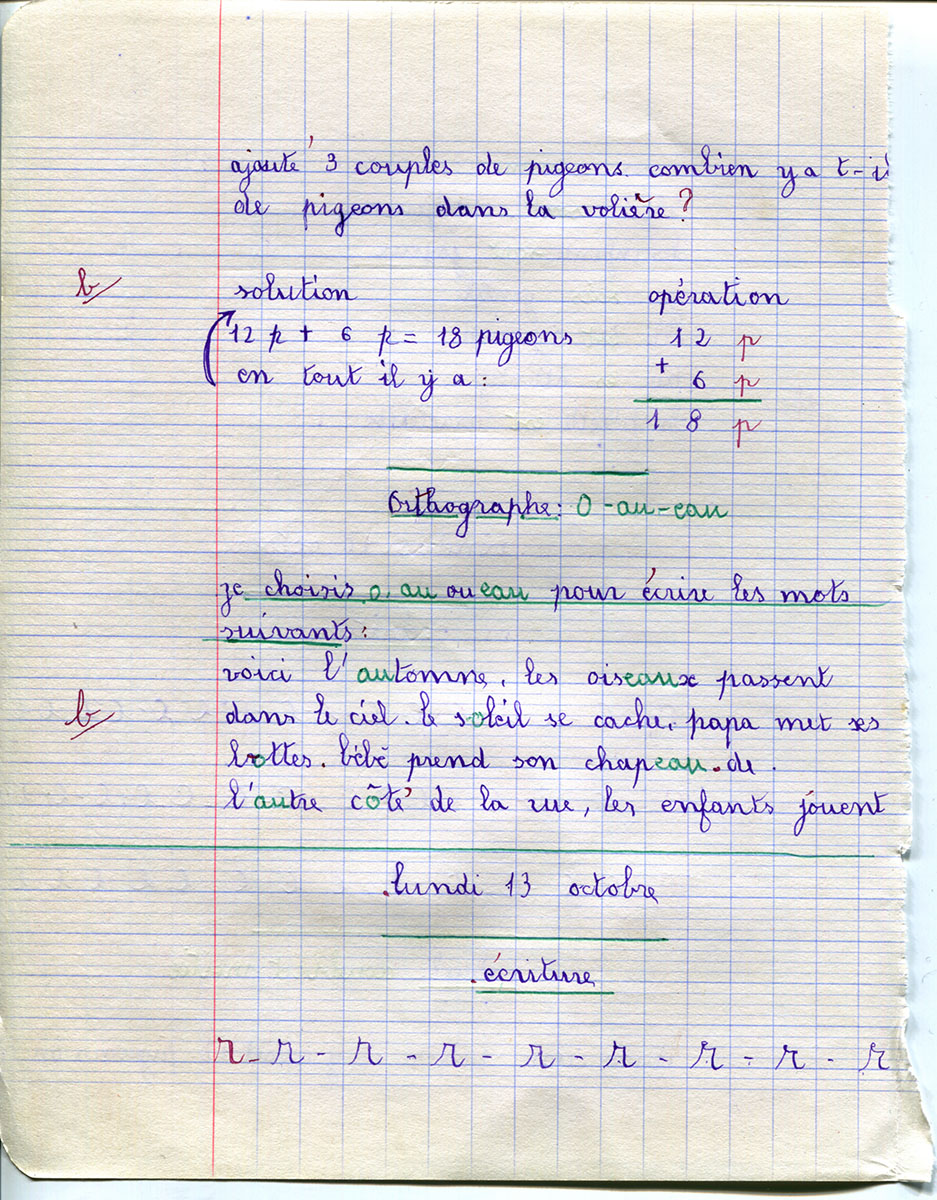 ajouté 3 couples de pigeons. combien y a t-il
de pigeons dans la volière ?
b
solution opération
12 p + 6 p = 18 pigeons 12 p
en tout il y a : + 6 p
18 p
Orthographe : O - au - eau
je choisis o, au ou eau pour écrire les mots
suivants :
voici l'automne, les oiseaux passent
b
dans le ciel. le soleil se cache, papa met ses
bottes. bébé prend son chapeau. de .
l'autre côté de la rue, les enfants jouent
.lundi 13 octobre
.écriture
r - r - r - r - r - r - r - r - r